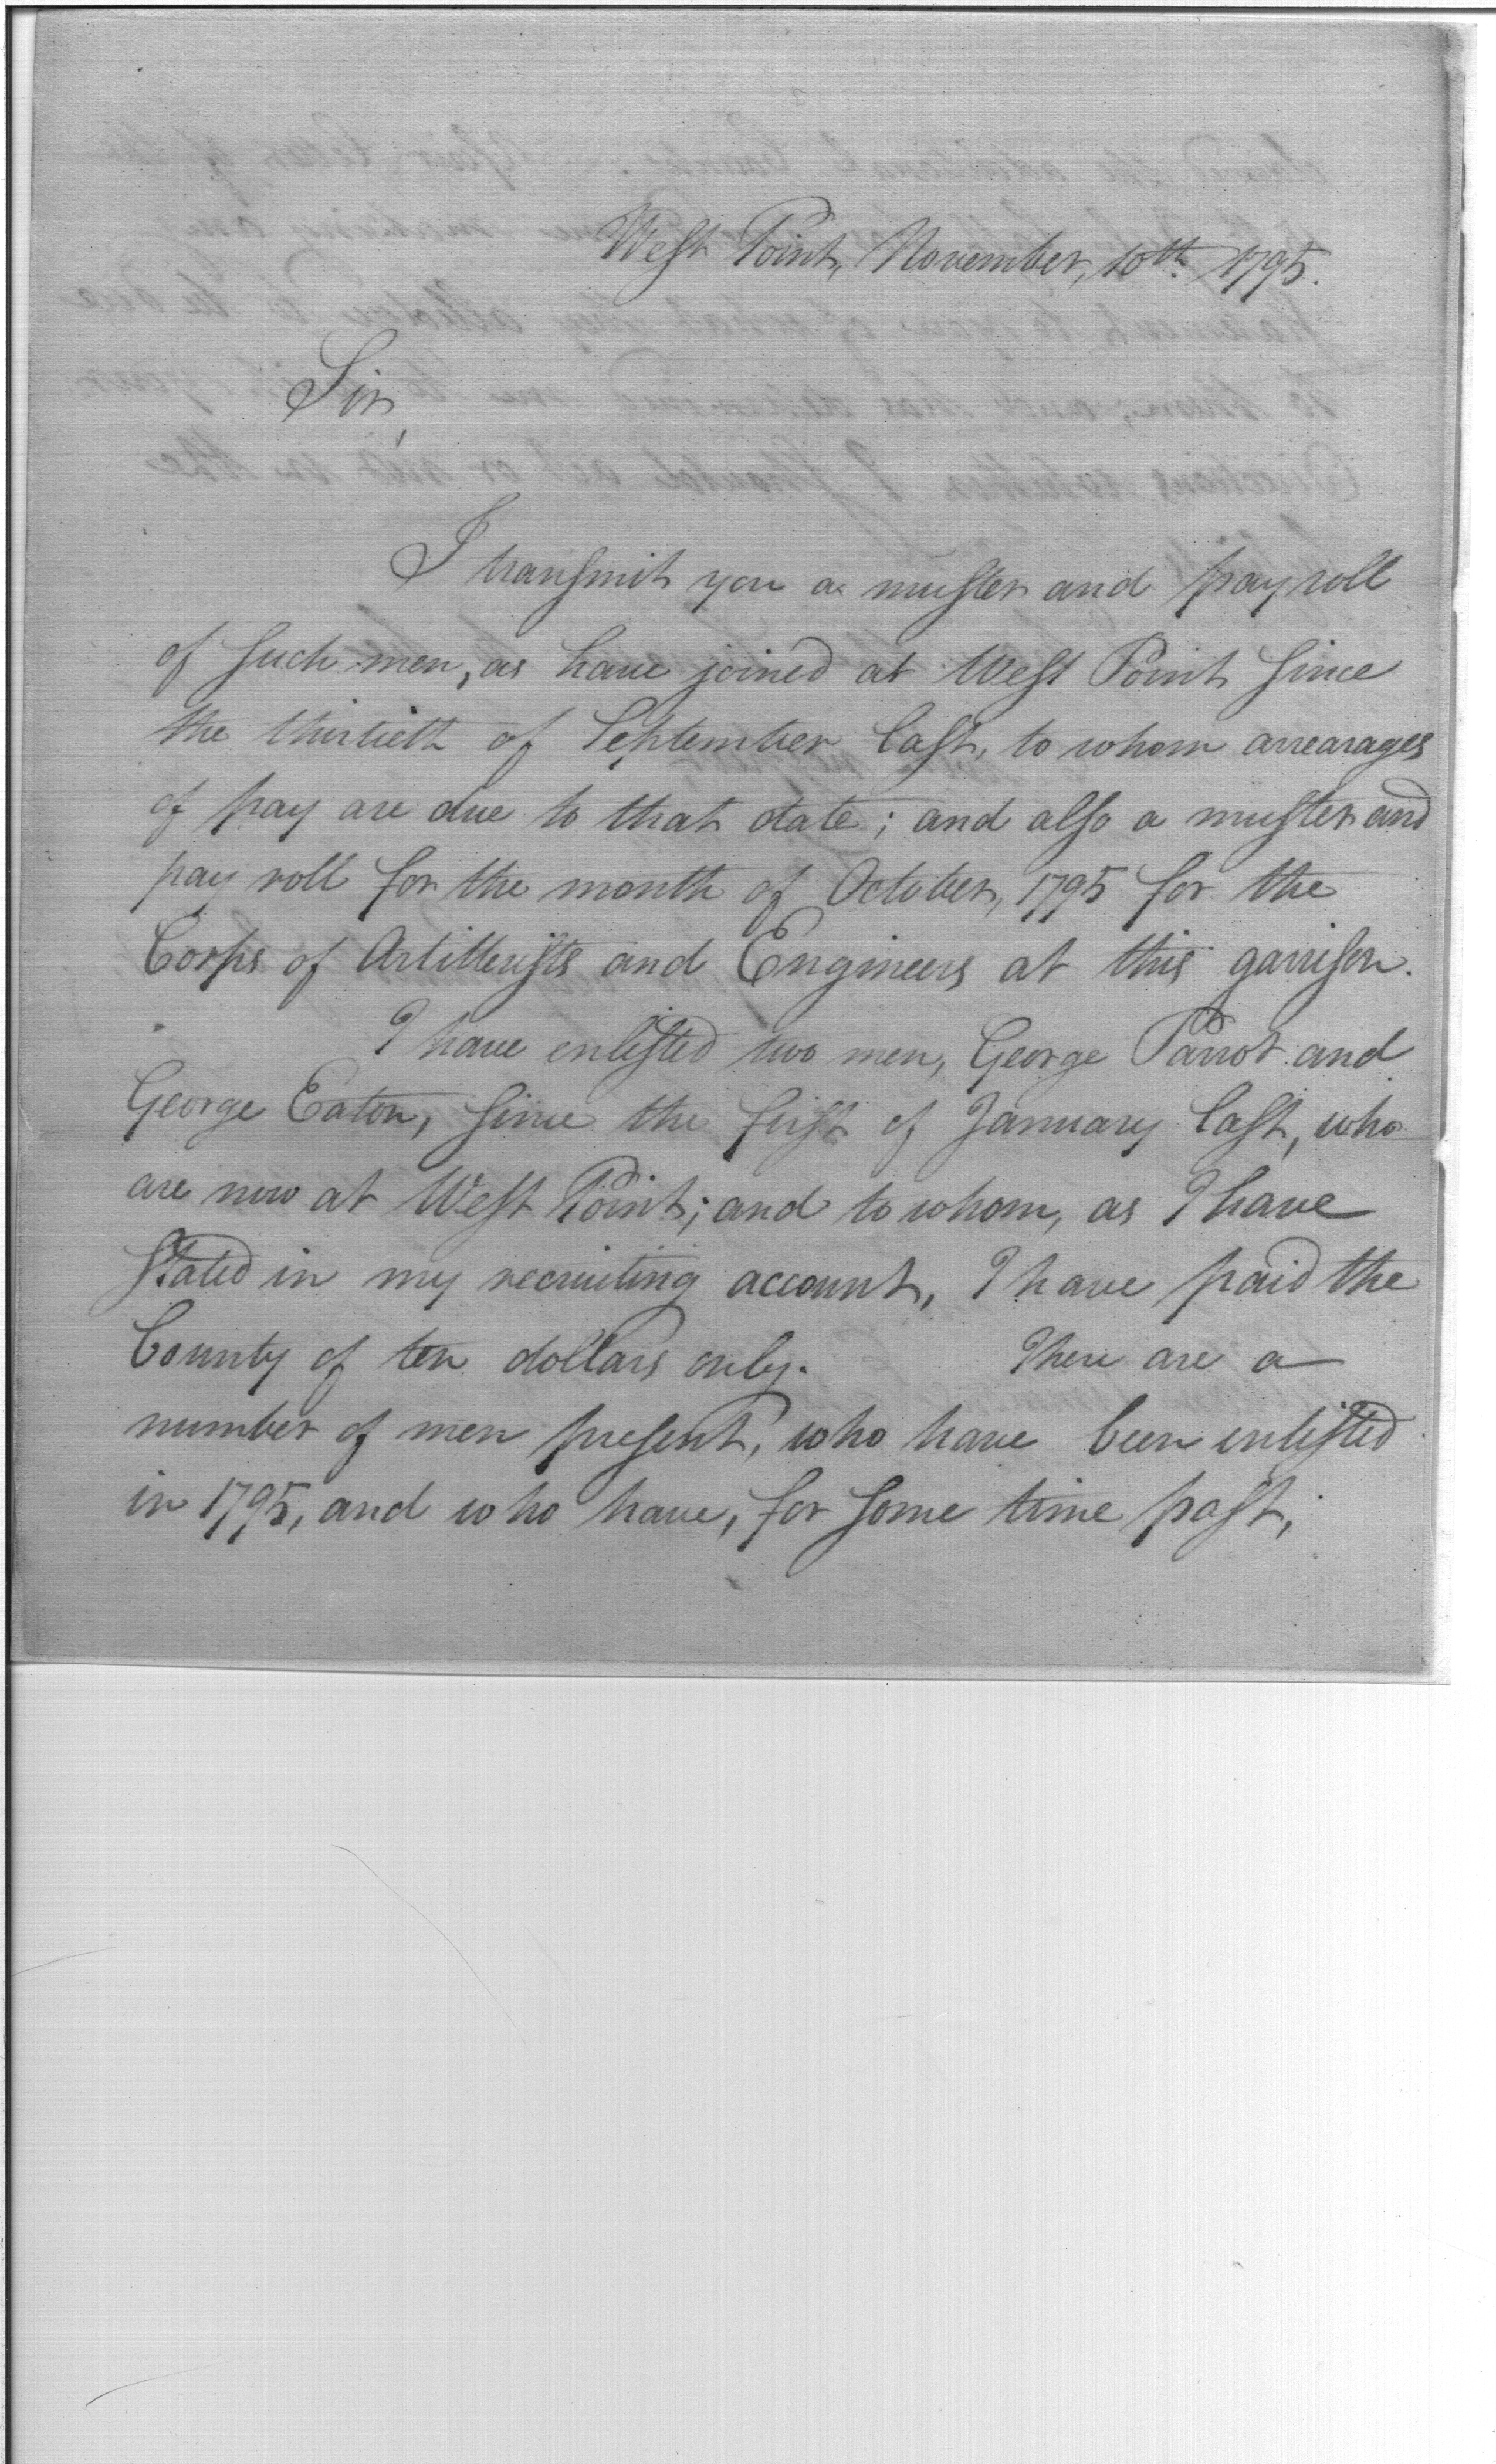 West Point, November, 10th 1795.
Sir,
I transmit you a muster and pay roll
of such men, as have joined at West Point since
the thirtieth of September last, to whom arrearages
of pay are due to that date; and also a muster and
pay roll for the month of October, 1795 for the
Corps of Artillerists and Engineers at this garrison.
I have enlisted two men, George Parrot and
George Eaton, since the first of January last, who
are now at West Point; and to whom, as I have
stated in my recruiting account, I have paid the
bounty of ten dollars only. There are a
number of men present, who have been enlisted
in 1795, and who have, for some time past,